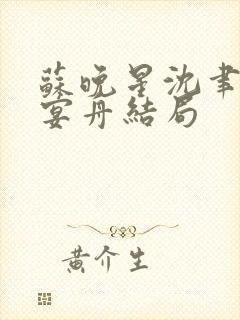 蘇晚星沈聿
宴丹結局
黄介生